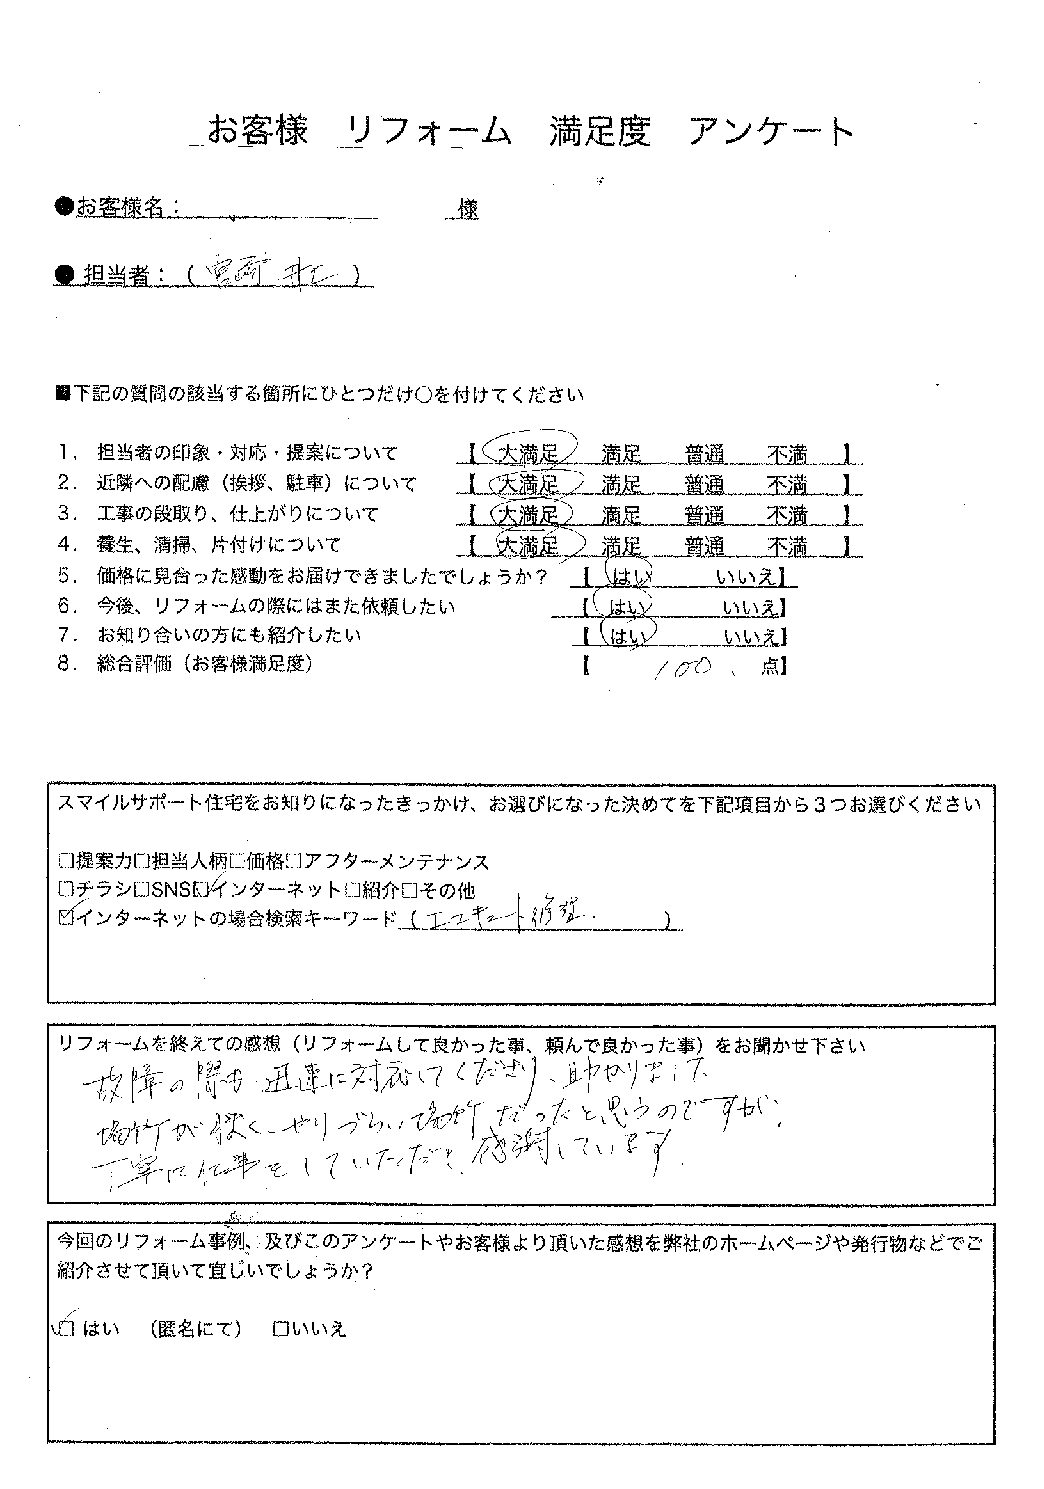 お客様　リフォーム　満足度　アンケート
●お客様名：　　　　　　様
●担当者：（宮﨑　　）
■下記の質問の該当する箇所にひとつだけ〇を付けてください
1．担当者の印象・対応・提案について　【　大満足　満足　普通　不満　】
2．近隣への配慮（挨拶、駐車）について　【　大満足　満足　普通　不満　】
3．工事の段取り、仕上がりについて　【　大満足　満足　普通　不満　】
4．養生、清掃、片付けについて　【　大満足　満足　普通　不満　】
5．価格に見合った感動をお届けできましたでしょうか？　【　はい　いいえ】
6．今後、リフォームの際にはまた依頼したい　【　はい　いいえ】
7．お知り合いの方にも紹介したい　【　はい　いいえ】
8．総合評価（お客様満足度）　【　100　点】
スマイルサポート住宅をお知りになったきっかけ、お選びになった決めてを下記項目から３つお選びください
□提案力□担当人柄□価格□アフターメンテナンス
□チラシ□SNS☑インターネット□紹介□その他
☑インターネットの場合検索キーワード（エコキュート修理　）
リフォームを終えての感想（リフォームして良かった事、頼んで良かった事）をお聞かせ下さい
故障の際も迅速に対応してくださり、助かりました
場所が狭く、やりづらい場所だったと思うのですが、
丁寧に仕事をしていただき、感謝しています。
今回のリフォーム事例、及びこのアンケートやお客様より頂いた感想を弊社のホームページや発行物などでご
紹介させて頂いて宜しいでしょうか？
☑はい　（匿名にて）　□いいえ